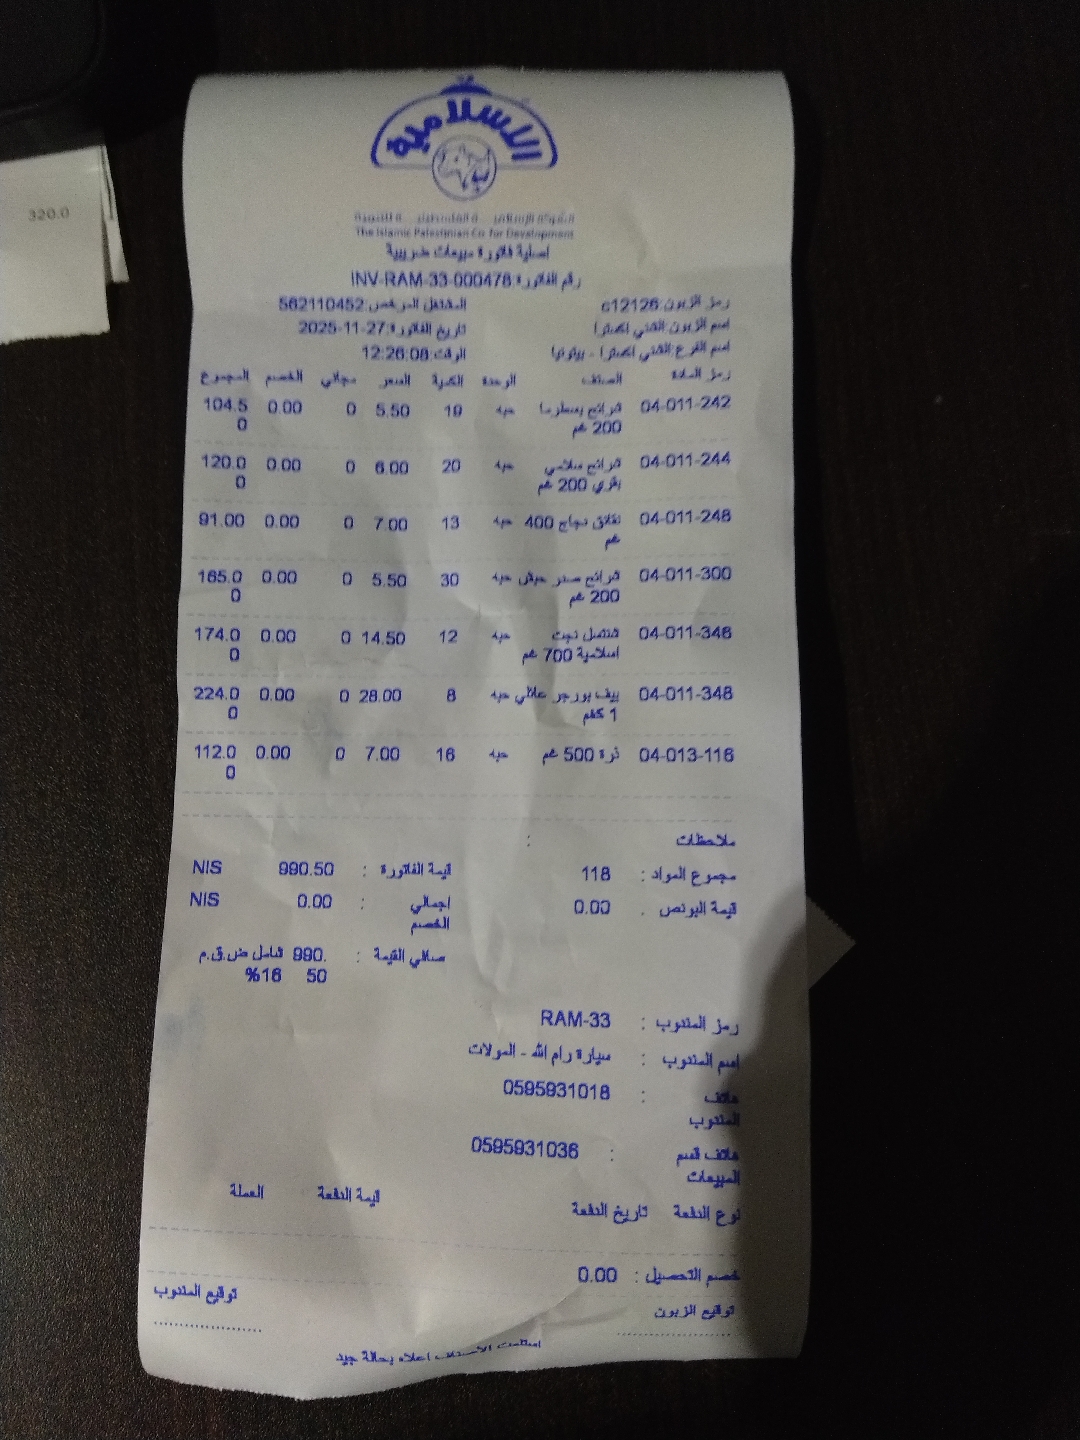 الإسلامية
The Islamic Palestinian Co. for Development
اصلية فاتورة مبيعات ضريبية
رقم الفاتورة: INV-RAM-33-000478
رمز الزبون: c12126 المشتغل المرخص: 562110452
اسم الزبون: الشني اكسترا تاريخ الفاتورة: 2025-11-27
اسم الفرع: الشني اكسترا - بيتونيا الوقت: 12:26:08
رمز المادة الصنف الوحدة الكمية السعر مجاني الخصم المجموع
04-011-242 شرائح بسطرما حبه 19 5.50 0 0.00 104.5
200 غم 0
04-011-244 شرائح سلامي حبه 20 6.00 0 0.00 120.0
بقري 200 غم 0
04-011-248 نقانق دجاج 400 حبه 13 7.00 0 0.00 91.00
غم
04-011-300 شرائح صدر حبش حبه 30 5.50 0 0.00 165.0
200 غم 0
04-011-346 شنتسل نجت حبه 12 14.50 0 0.00 174.0
اسلامية 700 غم 0
04-011-348 بيف بورجر عائلي حبه 8 28.00 0 0.00 224.0
1 كغم 0
04-013-116 ذرة 500 غم حبه 16 7.00 0 0.00 112.0
0
ملاحظات :
مجموع المواد : 118 قيمة الفاتورة : 990.50 NIS
قيمة البونص : 0.00 اجمالي : 0.00 NIS
الخصم
صافي القيمة : 990. شامل ض.ق.م
50 16%
رمز المندوب : RAM-33
اسم المندوب : سيارة رام الله - المولات
هاتف : 0595931018
المندوب
هاتف قسم : 0595931036
المبيعات
نوع الدفعة تاريخ الدفعة قيمة الدفعة العملة
خصم التحصيل : 0.00
توقيع الزبون توقيع المندوب
استلمت الاصناف اعلاه بحالة جيد
320.0